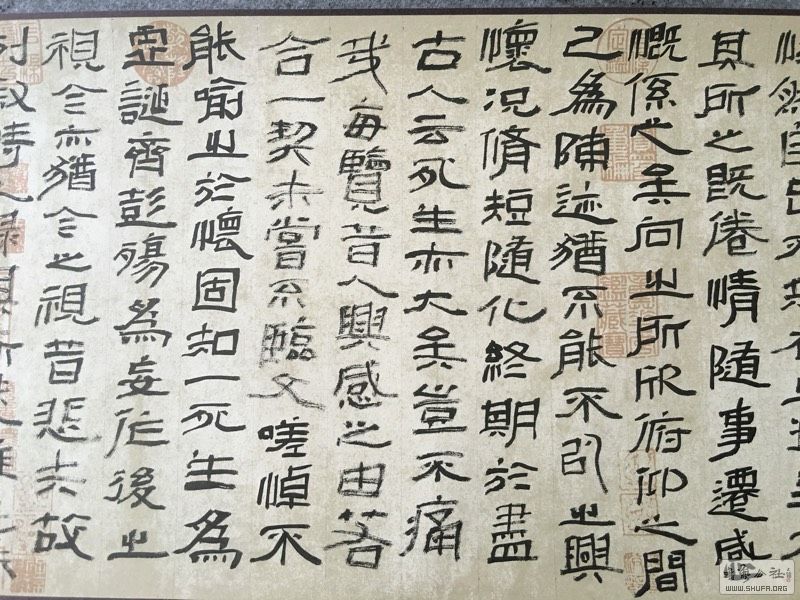 然自足不
其所之既倦情隨事遷感
慨係之矣向之所欣俯仰之間
已為陳迹猶不能不以之興
懷況脩短隨化終期於盡
古人云死生亦大矣豈不痛
哉每覽昔人興感之由若
合一契未嘗不臨文嗟悼不
能喻之於懷固知一死生為
虛誕齊彭殤為妄作後之
視今亦猶今之視昔悲夫故
列敘時人錄其所
WWW.SHUFA.ORG